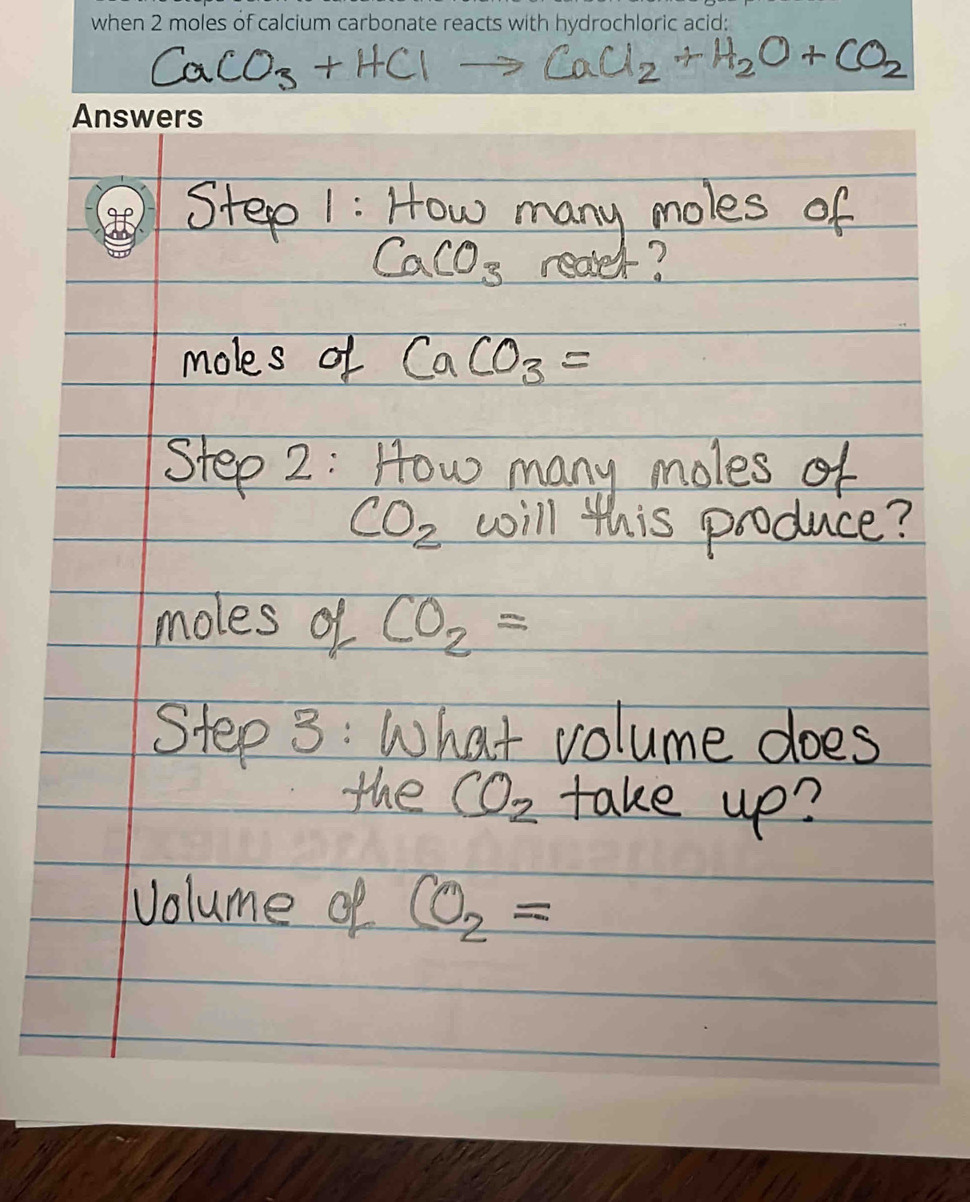 when 2 moles of calcium carbonate reacts with hydrochloric acid:
CaCO₃ + HCl → CaCl₂ + H₂O + CO₂
Answers
Step 1: How many moles of
CaCO₃ react?
moles of CaCO₃ =
Step 2: How many moles of
CO₂ will this produce?
moles of CO₂ =
Step 3: What volume does
the CO₂ take up?
Volume of CO₂ =